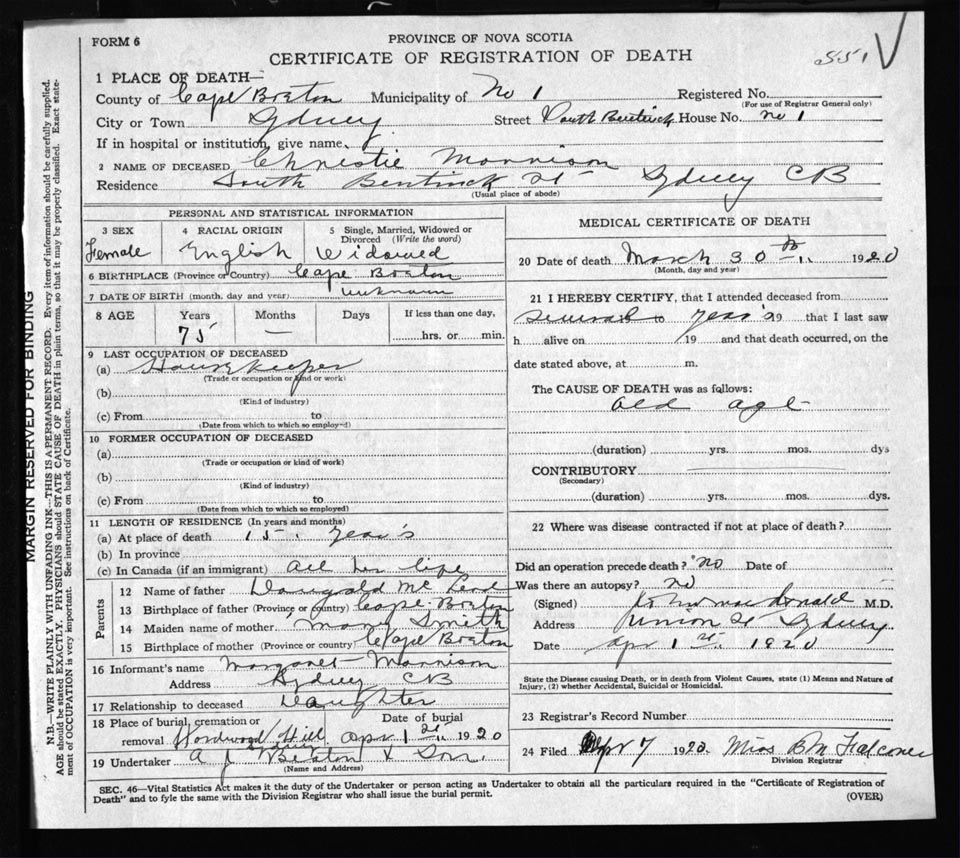 FORM 6
PROVINCE OF NOVA SCOTIA
CERTIFICATE OF REGISTRATION OF DEATH
551
1 PLACE OF DEATH—
County of Cape Breton Municipality of No 1 Registered No.
(For use of Registrar General only)
City or Town Sydney Street South Bentinck House No. no 1
If in hospital or institution, give name
2 NAME OF DECEASED Christie Morrison
Residence South Bentinck St Sydney CB
(Usual place of abode)
PERSONAL AND STATISTICAL INFORMATION
3 SEX 4 RACIAL ORIGIN 5 Single, Married, Widowed or
Divorced (Write the word)
Female English Widowed
6 BIRTHPLACE (Province or Country) Cape Breton
7 DATE OF BIRTH (month, day and year) unknown
8 AGE Years Months Days If less than one day,
75 — hrs. or min.
9 LAST OCCUPATION OF DECEASED
(a) Housekeeper
(Trade or occupation or kind or work)
(b)
(Kind of industry)
(c) From to
(Date from which to which so employed)
10 FORMER OCCUPATION OF DECEASED
(a)
(Trade or occupation or kind of work)
(b)
(Kind of industry)
(c) From to
(Date from which to which so employed)
11 LENGTH OF RESIDENCE (In years and months)
(a) At place of death 15 year's
(b) In province
(c) In Canada (if an immigrant) all her life
Parents
12 Name of father Dougald Mc
13 Birthplace of father (Province or country) Cape Breton
14 Maiden name of mother Mary Smith
15 Birthplace of mother (Province or country) Cape Breton
16 Informant's name Margaret Morrison
Address Sydney CB
17 Relationship to deceased Daughter
18 Place of burial, cremation or Date of burial
removal Hardwood Hill Sydney Apr 1st 1920
19 Undertaker A J Beaton & Son.
(Name and Address)
MEDICAL CERTIFICATE OF DEATH
20 Date of death March 30th 1920
(Month, day and year)
21 I HEREBY CERTIFY, that I attended deceased from
several to year's 19 that I last saw
h alive on 19 and that death occurred, on the
date stated above, at m.
The CAUSE OF DEATH was as follows:
old age
(duration) yrs. mos. dys
CONTRIBUTORY
(Secondary)
(duration) yrs. mos. dys.
22 Where was disease contracted if not at place of death?
Did an operation precede death? no Date of
Was there an autopsy? no
(Signed) John MacDonald M.D.
Address Union St Sydney.
Date Apr 1st 1920
State the Disease causing Death, or in death from Violent Causes, state (1) Means and Nature of
Injury, (2) whether Accidental, Suicidal or Homicidal.
23 Registrar's Record Number
24 Filed Apr 7 1920. Miss B M Falconer
Division Registrar
SEC. 46—Vital Statistics Act makes it the duty of the Undertaker or person acting as Undertaker to obtain all the particulars required in the "Certificate of Registration of
Death" and to fyle the same with the Division Registrar who shall issue the burial permit.
(OVER)
MARGIN RESERVED FOR BINDING
N.B.—WRITE PLAINLY WITH UNFADING INK—THIS IS A PERMANENT RECORD. Every item of information should be carefully supplied.
AGE should be stated EXACTLY. PHYSICIANS should STATE CAUSE OF DEATH in plain terms, so that it may be properly classified. Exact state-
ment of OCCUPATION is very important. See instructions on back of Certificate.